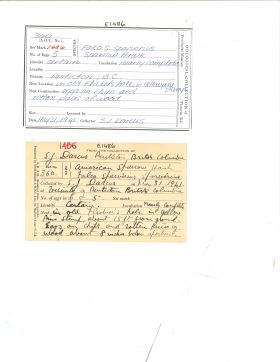 E1486
360
(A.O.U. No.)
Set Mark 1486 Falco sparverius
No. of Eggs 5 Sparrow Hawk
Identity certain Incubation nearly complete
Penticton, B.C.
Nest Location in old Flicker's hole in yellow pine
Nest Construction eggs on chips and
rotten pieces of wood
Date May 31, 1941 Collector S.J. DARCUS
1486 E1486
FROM THE COLLECTION OF
S.J. Darcus Penticton British Columbia
American Sparrow Hawk
360. Falco sparverius sparverius
Collected by S.J. Darcus on May 31, 1941.
at Vicinity of Penticton British Columbia
No. of eggs in set 5 Set mark
Identity Certain. Incubation Nearly Complete
Nest in old Flicker's hole in yellow
Pine about 15 ft from ground.
Eggs on chips and rotten pieces of
wood about 8 inches below entrance